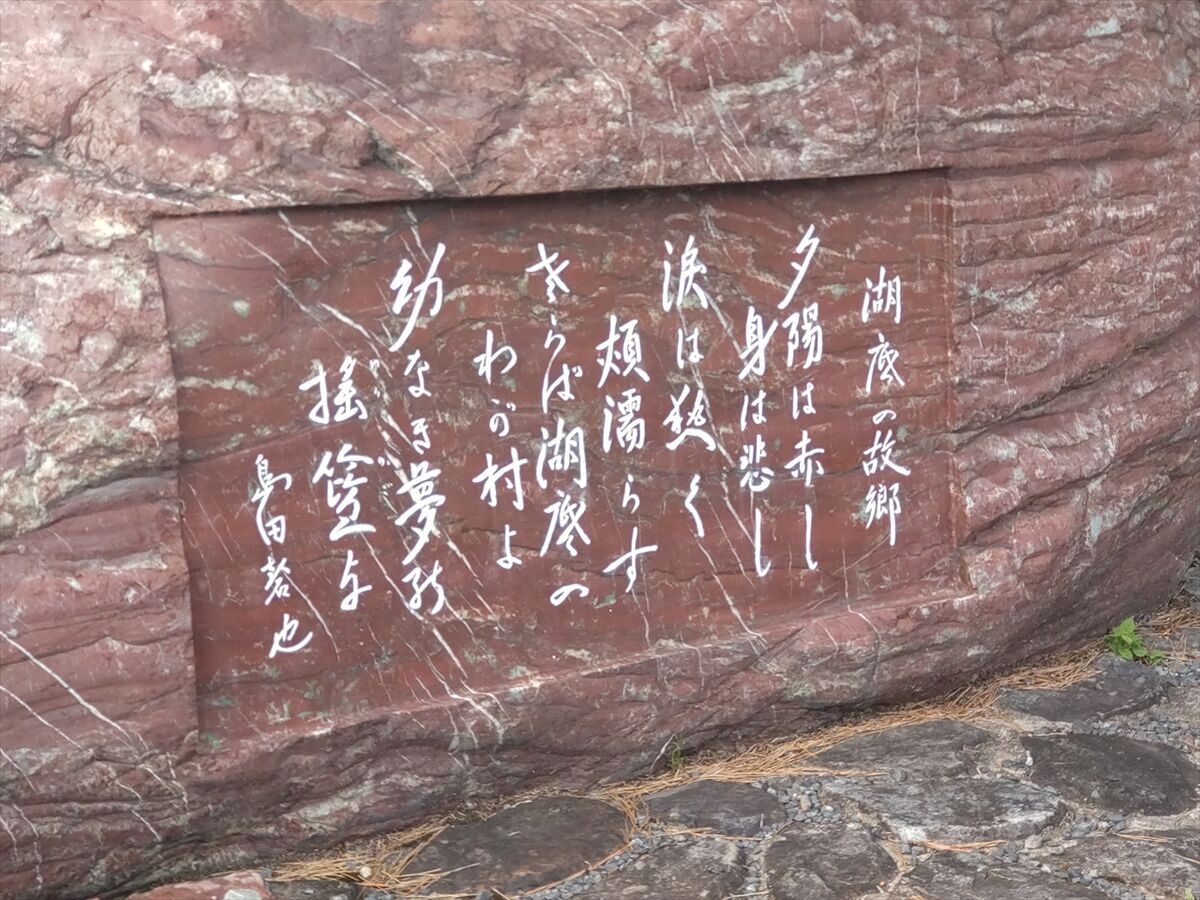 湖底の故郷
夕陽は赤し
身は悲し
涙は熱く
頬濡らす
さらば湖底の
わが村よ
幼なき夢の
揺籃よ
島田磬也